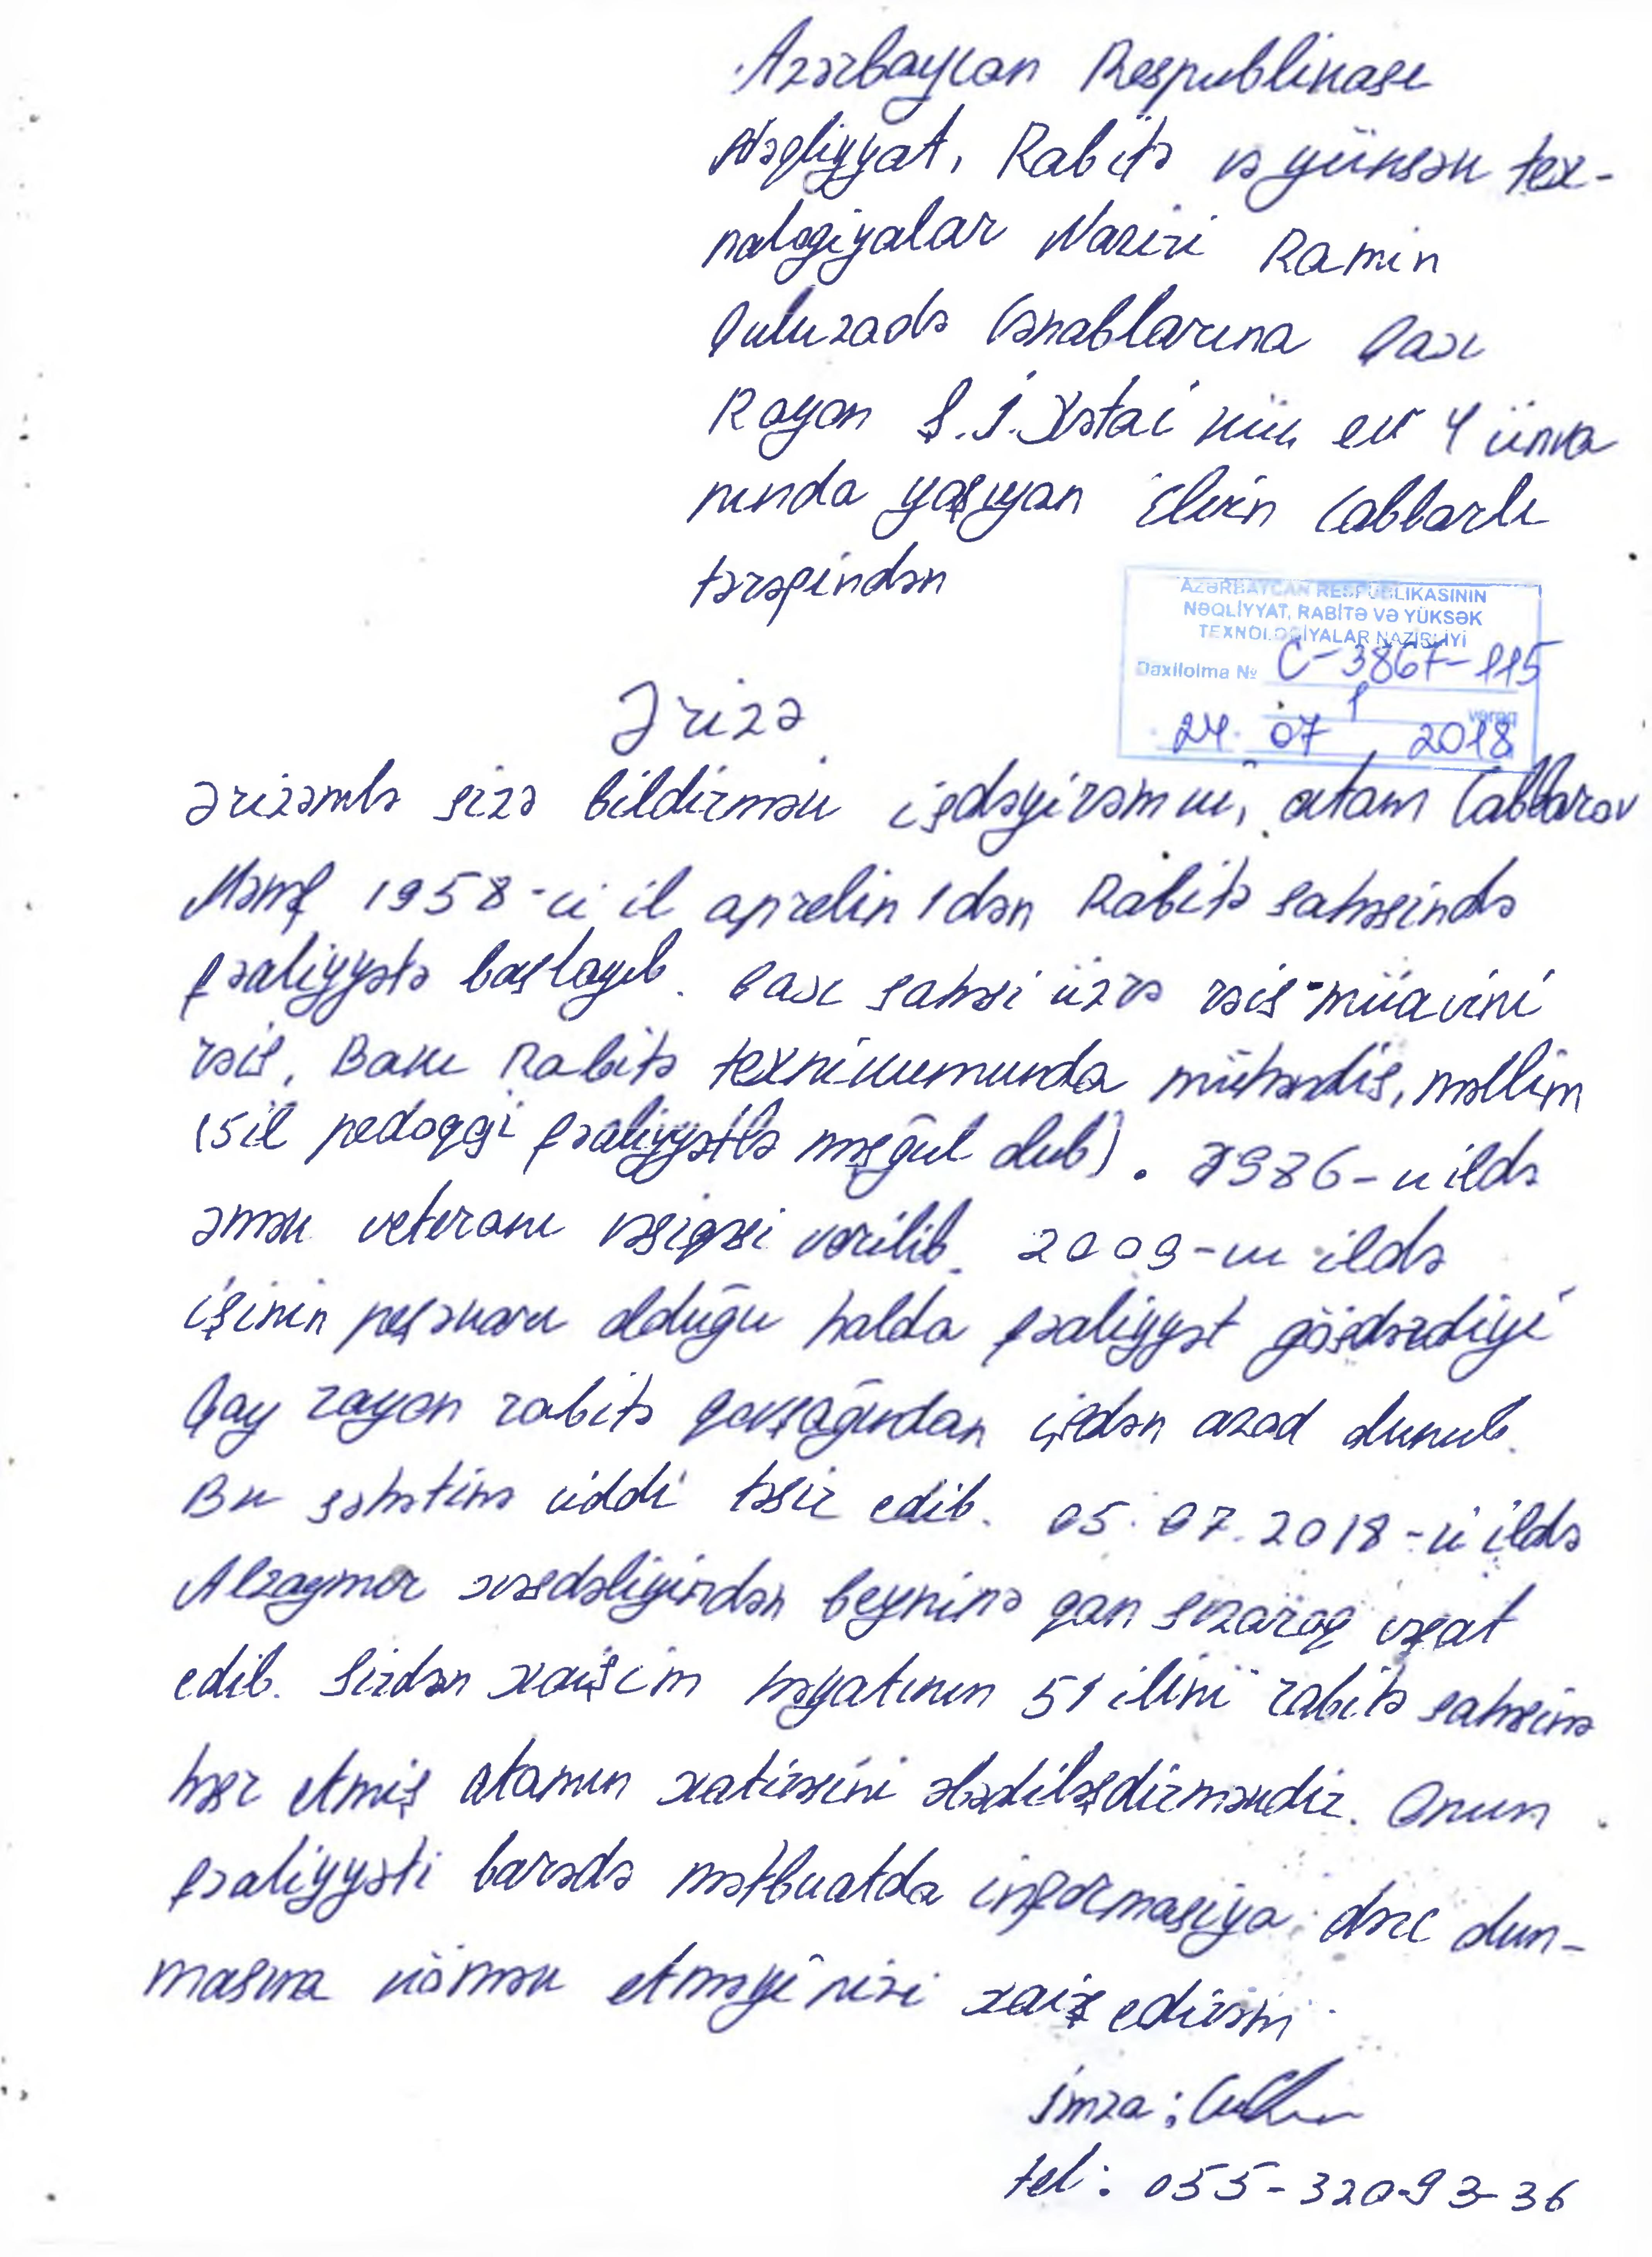 Azərbaycan Respublikası
Nəqliyyat, Rabitə və yüksək tex-
nalogiyalar Naziri Ramin
Quluzadə Cənablarına Qax
Rayon Ş.İ.Xətai küç ev 4 ünva
nında yaşıyan Elvin Cabbarlı
tərəfindən
AZƏRBAYCAN RESPUBLİKASININ
NƏQLİYYAT, RABİTƏ VƏ YÜKSƏK
TEXNOLOGİYALAR NAZİRLİYİ
Daxilolma № C-3867-115
1 vərəq
24. 07 2018
Ərizə
Ərizəmlə sizə bildirmək işdəyirəm ki, atam Cabbarov
1958-ci il aprelin 1dən Rabitə sahəsində
fəaliyyətə başlayıb. Qax sahəsi üzrə rəis-müavini
rəis, Bakı Rabitə texnikumunda mühəndis, məllim
(5 il pedoqgi fəaliyyətlə məşğul olub). 1986-cı ildə
əmək veteranı vəsiqəsi verilib. 2009-cu ildə
işinin peşəkarı olduğu halda fəaliyyət gösdərdiyi
Qax rayon rabitə qovşağından işdən azad olunub.
Bu səhətinə ciddi təsir edib. 05.07.2018-ci ildə
Alzaymer xəsdəliyindən beyninə qan sızaraq vəfat
edib. Sizdən xaişim həyatının 51 ilini rabitə sahəsinə
həsr etmiş atamın xatirəsini əbədiləşdirməkdir. Onun
fəaliyyəti barədə mətbuatda informasiya dərc olun-
masına kömək etməyinizi xaiş edirəm
İmza:
tel: 055-320-93-36